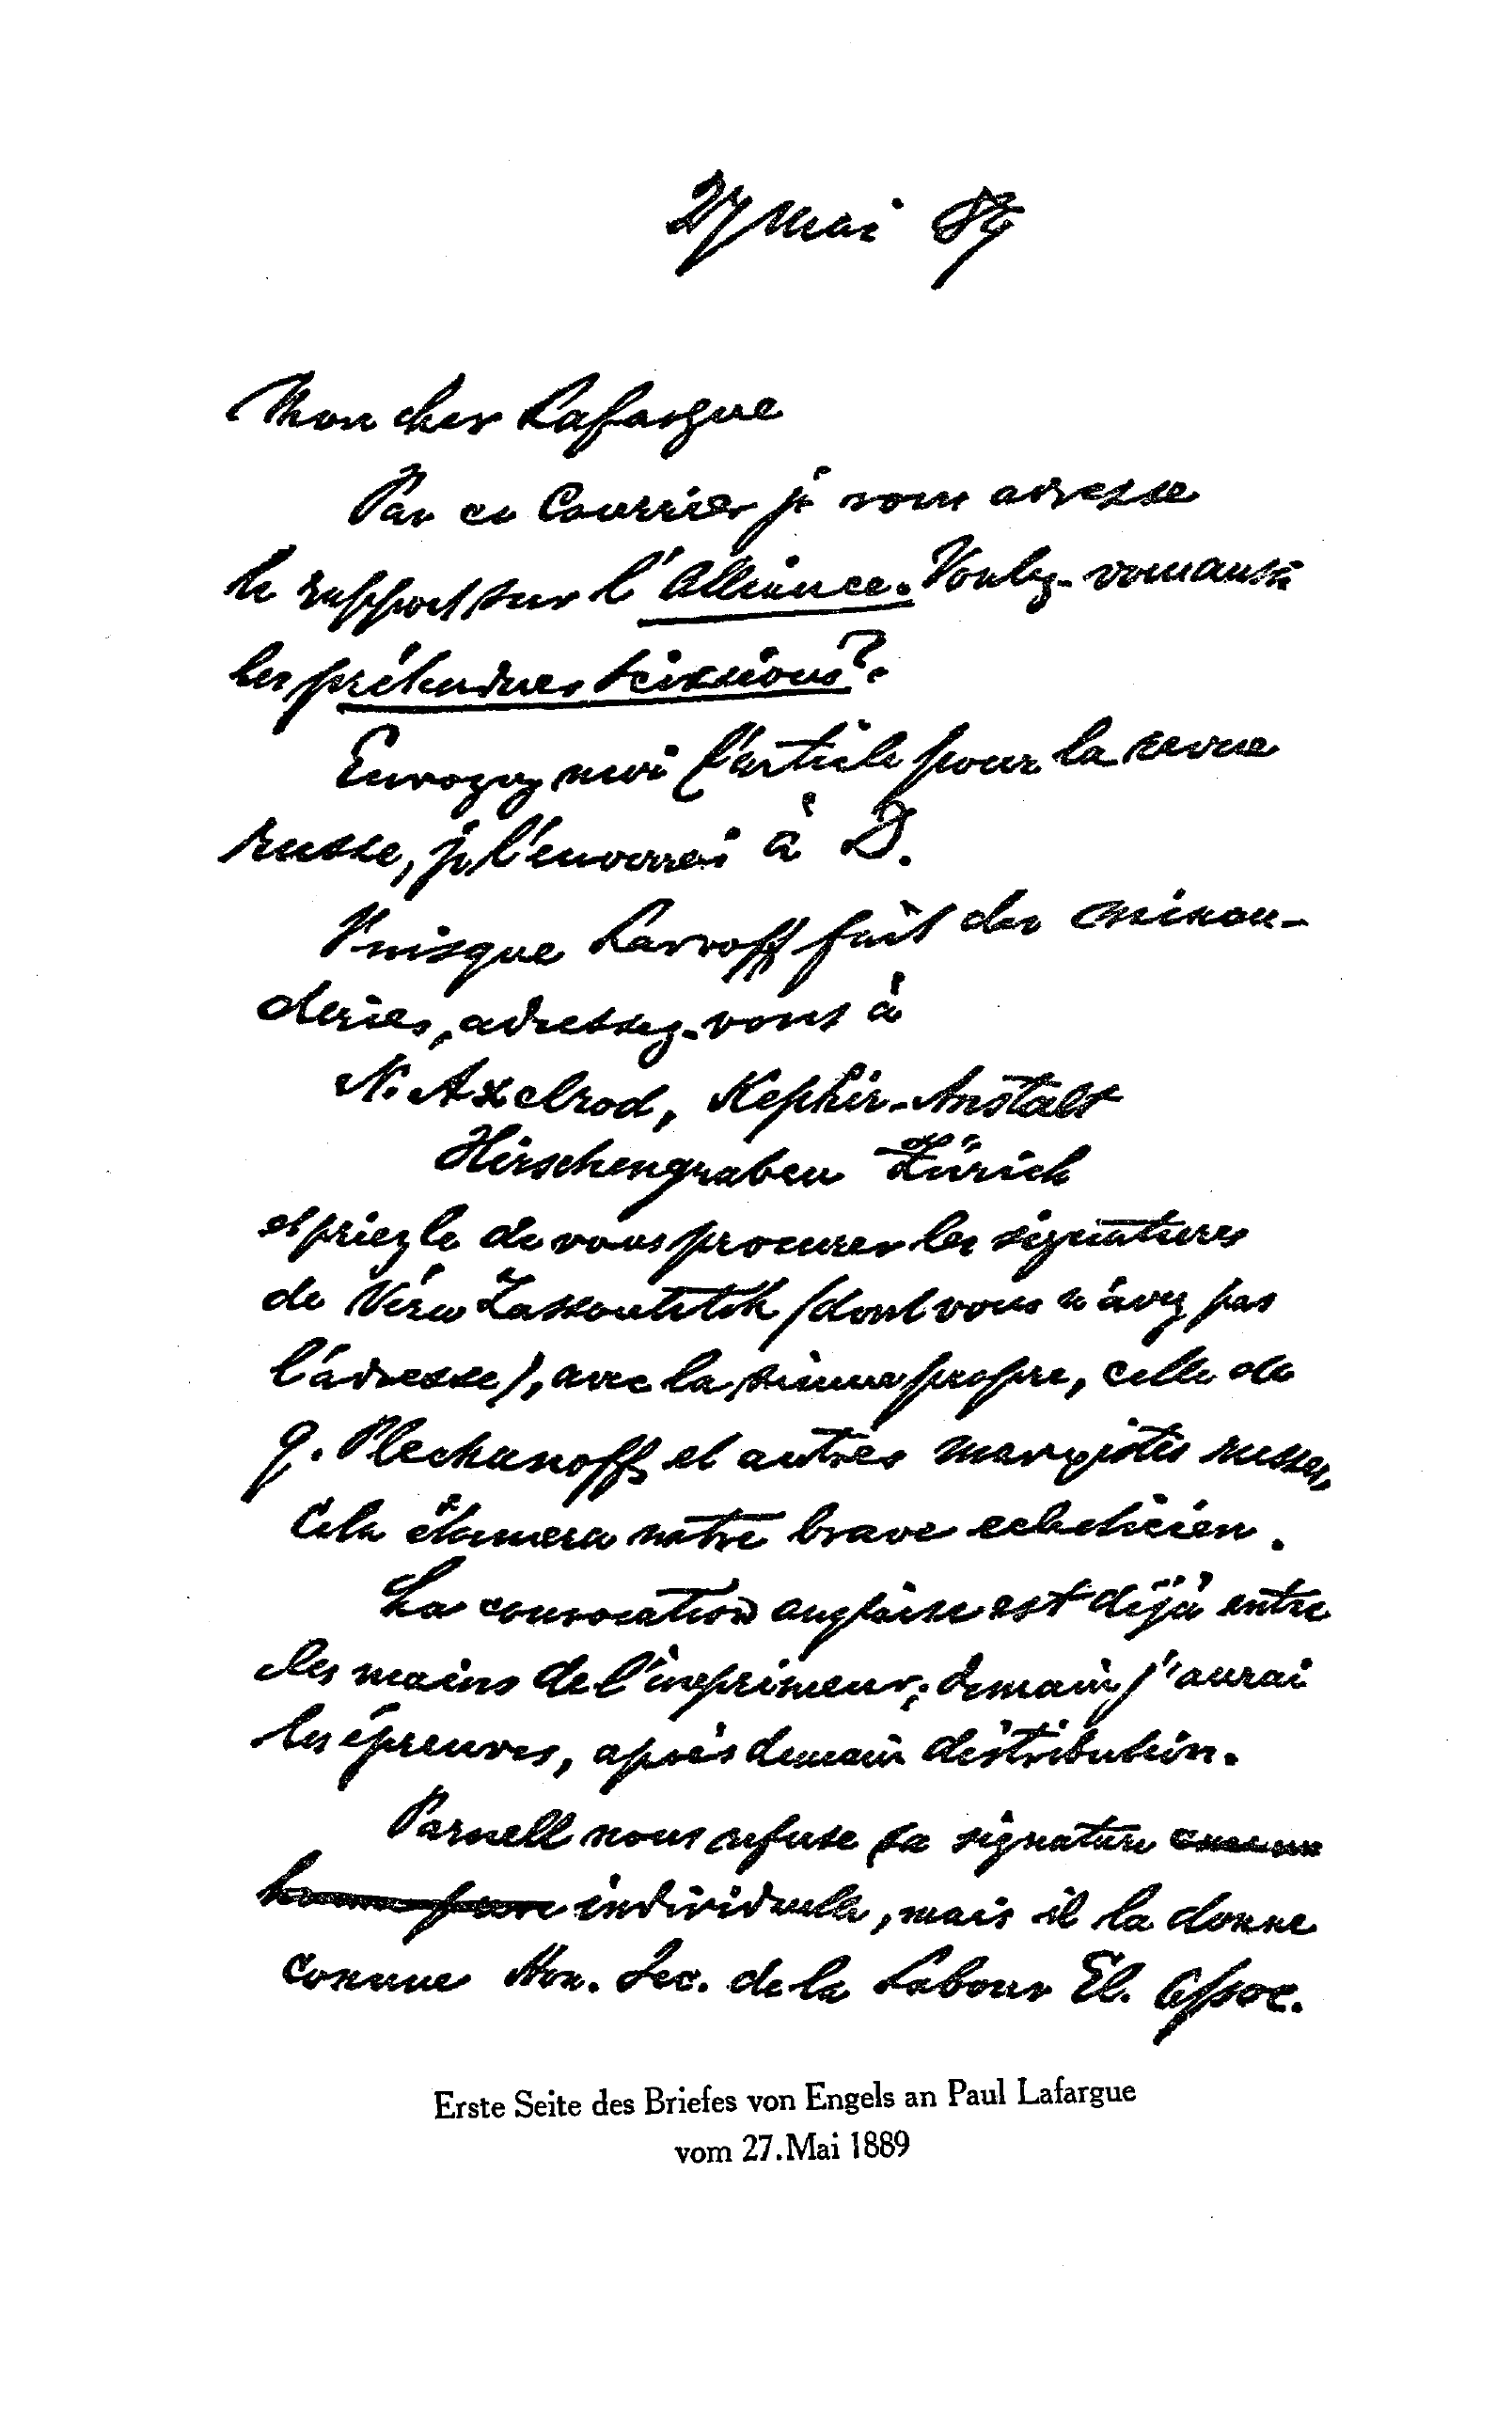 27 Mai 89
Mon cher Lafargue
Par ce Courrier je vous adresse
le rapport sur l'Alliance. Voulez-vous aussi
les prétendues scissions?
Envoyez moi l'article pour la revue
russe, je l'enverrai à D.
Puisque Lavroff fait des minau-
deries, adressez-vous à
N. Axelrod, Kephir-Anstalt
Hirschengraben Zürich
et priez le de vous procurer les signatures
de Véra Zassoulitch (dont vous n'avez pas
l'adresse), avec la sienne propre, celle de
G. Plechanoff et autres marxistes russes,
Cela étonnera notre brave eclecticien.
La convocation anglaise est déjà entre
les mains de l'imprimeur; demain j'aurai
les épreuves, après demain distribution.
Parnell nous refuse sa signature
individuelle, mais il la donne
comme Hon. Sec. de la Labour El. Assoc.
Erste Seite des Briefes von Engels an Paul Lafargue
vom 27. Mai 1889